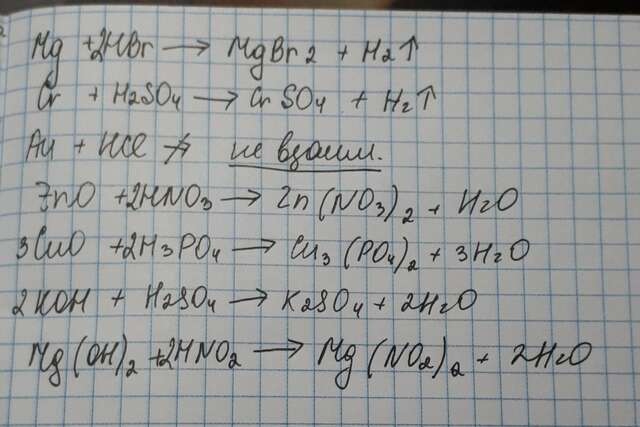 Mg + 2HBr → MgBr2 + H2↑
Cr + H2SO4 → CrSO4 + H2↑
Au + HCl ↛ не взаим.
ZnO + 2HNO3 → Zn(NO3)2 + H2O
3CuO + 2H3PO4 → Cu3(PO4)2 + 3H2O
2KOH + H2SO4 → K2SO4 + 2H2O
Mg(OH)2 + 2HNO2 → Mg(NO2)2 + 2H2O